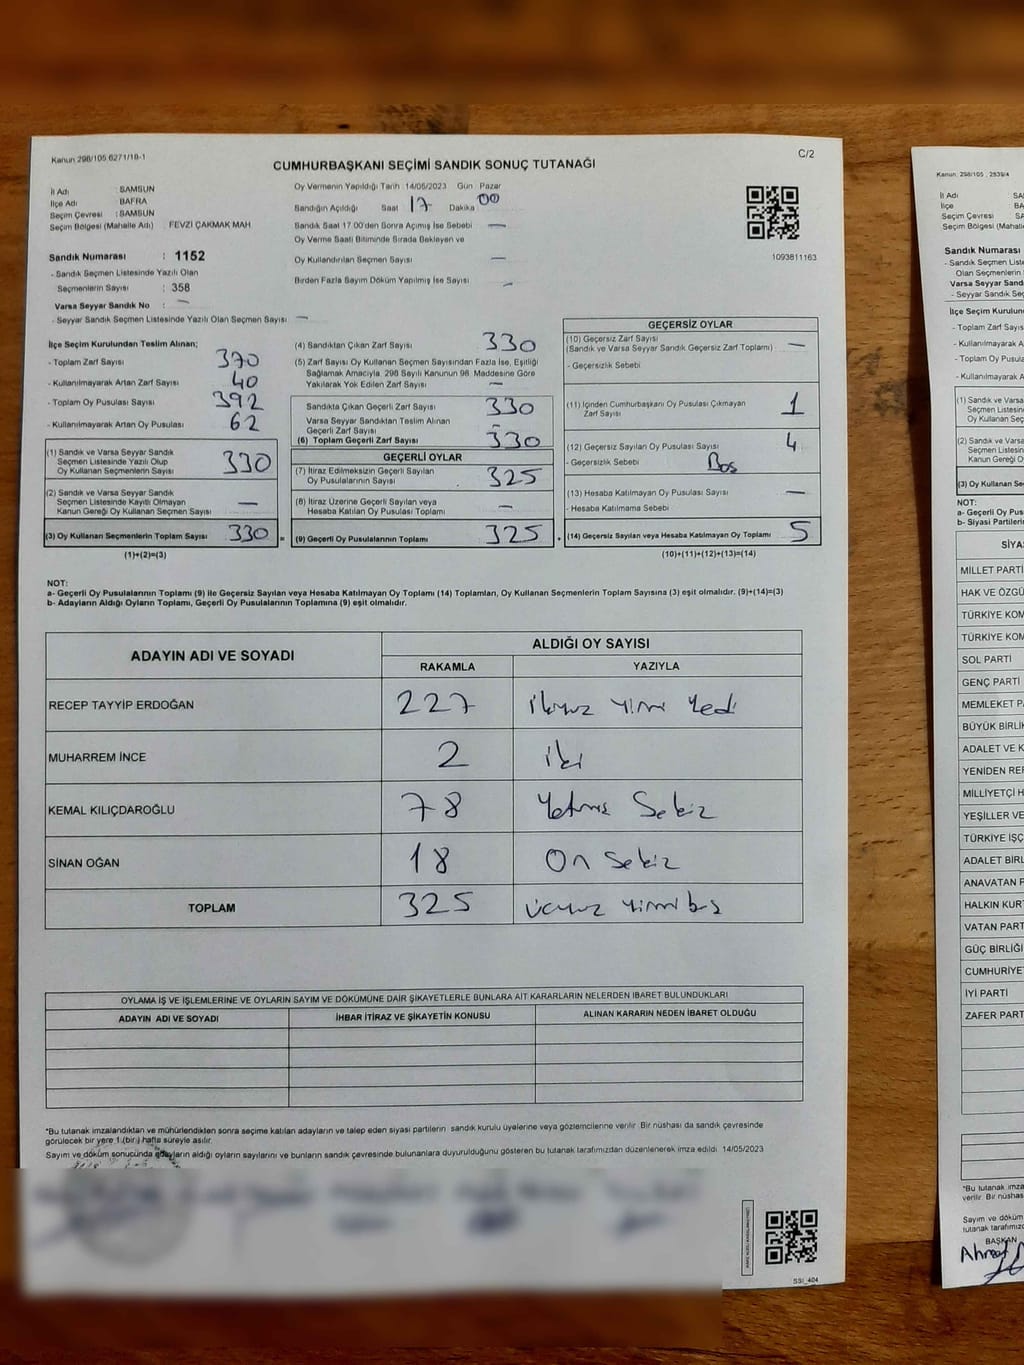 Kanun 298/105 6271/18-1
C/2
CUMHURBAŞKANI SEÇİMİ SANDIK SONUÇ TUTANAĞI
İl Adı : SAMSUN
İlçe Adı : BAFRA
Seçim Çevresi : SAMSUN
Seçim Bölgesi (Mahalle Adı) : FEVZİ ÇAKMAK MAH
Sandık Numarası : 1152
- Sandık Seçmen Listesinde Yazılı Olan
Seçmenlerin Sayısı : 358
Varsa Seyyar Sandık No : —
- Seyyar Sandık Seçmen Listesinde Yazılı Olan Seçmen Sayısı : —
Oy Vermenin Yapıldığı Tarih 14/05/2023 Gün Pazar
Sandığın Açıldığı Saat 17 Dakika 00
Sandık Saat 17.00'den Sonra Açımış İse Sebebi —
Oy Verme Saati Bitiminde Sırada Bekleyen ve
Oy Kullandırılan Seçmen Sayısı —
Birden Fazla Sayım Döküm Yapılmış İse Sayısı —
1093811163
İlçe Seçim Kurulundan Teslim Alınan;
- Toplam Zarf Sayısı 370
- Kullanılmayarak Artan Zarf Sayısı 40
- Toplam Oy Pusulası Sayısı 392
- Kullanılmayarak Artan Oy Pusulası 62
(1) Sandık ve Varsa Seyyar Sandık
Seçmen Listesinde Yazılı Olup
Oy Kullanan Seçmenlerin Sayısı 330
(2) Sandık ve Varsa Seyyar Sandık
Seçmen Listesinde Kayıtlı Olmayan
Kanun Gereği Oy Kullanan Seçmen Sayısı —
(3) Oy Kullanan Seçmenlerin Toplam Sayısı 330 =
(1)+(2)=(3)
(4) Sandıktan Çıkan Zarf Sayısı 330
(5) Zarf Sayısı Oy Kullanan Seçmen Sayısından Fazla İse, Eşitliği
Sağlamak Amacıyla, 298 Sayılı Kanunun 98. Maddesine Göre
Yakılarak Yok Edilen Zarf Sayısı —
Sandıkta Çıkan Geçerli Zarf Sayısı 330
Varsa Seyyar Sandıktan Teslim Alınan
Geçerli Zarf Sayısı —
(6) Toplam Geçerli Zarf Sayısı 330
GEÇERLİ OYLAR
(7) İtiraz Edilmeksizin Geçerli Sayılan
Oy Pusulalarının Sayısı 325
(8) İtiraz Üzerine Geçerli Sayılan veya
Hesaba Katılan Oy Pusulası Toplamı —
(9) Geçerli Oy Pusulalarının Toplamı 325 +
GEÇERSİZ OYLAR
(10) Geçersiz Zarf Sayısı
(Sandık ve Varsa Seyyar Sandık Geçersiz Zarf Toplamı) —
- Geçersizlik Sebebi
(11) İçinden Cumhurbaşkanı Oy Pusulası Çıkmayan
Zarf Sayısı 1
(12) Geçersiz Sayılan Oy Pusulası Sayısı 4
- Geçersizlik Sebebi Boş
(13) Hesaba Katılmayan Oy Pusulası Sayısı —
- Hesaba Katılmama Sebebi
(14) Geçersiz Sayılan veya Hesaba Katılmayan Oy Toplamı 5
(10)+(11)+(12)+(13)=(14)
NOT:
a- Geçerli Oy Pusulalarının Toplamı (9) ile Geçersiz Sayılan veya Hesaba Katılmayan Oy Toplamı (14) Toplamları, Oy Kullanan Seçmenlerin Toplam Sayısına (3) eşit olmalıdır. (9)+(14)=(3)
b- Adayların Aldığı Oyların Toplamı, Geçerli Oy Pusulalarının Toplamına (9) eşit olmalıdır.
ADAYIN ADI VE SOYADI ALDIĞI OY SAYISI
RAKAMLA YAZIYLA
RECEP TAYYİP ERDOĞAN 227 ikiyüz yirmi yedi
MUHARREM İNCE 2 iki
KEMAL KILIÇDAROĞLU 78 Yetmiş Sekiz
SİNAN OĞAN 18 On sekiz
TOPLAM 325 üçyüz yirmi beş
OYLAMA İŞ VE İŞLEMLERİNE VE OYLARIN SAYIM VE DÖKÜMÜNE DAİR ŞİKAYETLERLE BUNLARA AİT KARARLARIN NELERDEN İBARET BULUNDUKLARI
ADAYIN ADI VE SOYADI İHBAR İTİRAZ VE ŞİKAYETİN KONUSU ALINAN KARARIN NEDEN İBARET OLDUĞU
*Bu tutanak imzalandıktan ve mühürlendikten sonra seçime katılan adayların ve talep eden siyasi partilerin sandık kurulu üyelerine veya gözlemcilerine verilir. Bir nüshası da sandık çevresinde
görülecek bir yere 1 (bir) hafta süreyle asılır.
Sayım ve döküm sonucunda adayların aldığı oyların sayılarını ve bunların sandık çevresinde bulunanlara duyurulduğunu gösteren bu tutanak tarafımızdan düzenlenerek imza edildi. 14/05/2023
SSI_404
Kanun: 298/105 , 2539/4
İl Adı
İlçe
Seçim Çevresi
Seçim Bölgesi (Mahalle
Sandık Numarası
- Sandık Seçmen Liste
Olan Seçmenlerin
Varsa Seyyar Sand
- Seyyar Sandık Seç
İlçe Seçim Kurulun
- Toplam Zarf Sayıs
- Kullanılmayarak A
- Toplam Oy Pusula
- Kullanılmayarak A
(1) Sandık ve Varsa
Seçmen Listesin
Oy Kullanan Seç
(2) Sandık ve Varsa
Seçmen Listesin
Kanun Gereği O
(3) Oy Kullanan Se
NOT:
a- Geçerli Oy Pus
b- Siyasi Partilerin
SİYA
MİLLET PARTİ
HAK VE ÖZGÜ
TÜRKİYE KOM
TÜRKİYE KOM
SOL PARTİ
GENÇ PARTİ
MEMLEKET PA
BÜYÜK BİRLİK
ADALET VE K
YENİDEN REF
MİLLİYETÇİ H
YEŞİLLER VE
TÜRKİYE İŞÇ
ADALET BİRL
ANAVATAN P
HALKIN KUR
VATAN PART
GÜÇ BİRLİĞİ
CUMHURİYE
İYİ PARTİ
ZAFER PART
*Bu tutanak imza
verilir. Bir nüshas
Sayım ve döküm
tutanak tarafımızd
BAŞKAN